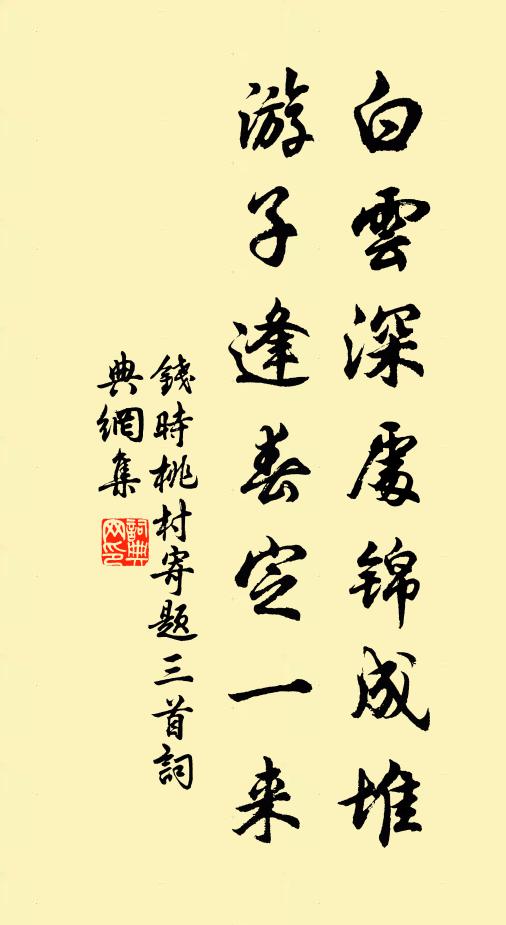 白雲深處錦成堆
游子逢春定一来
錢時桃村寄題三首詞
典網集
詞典网印